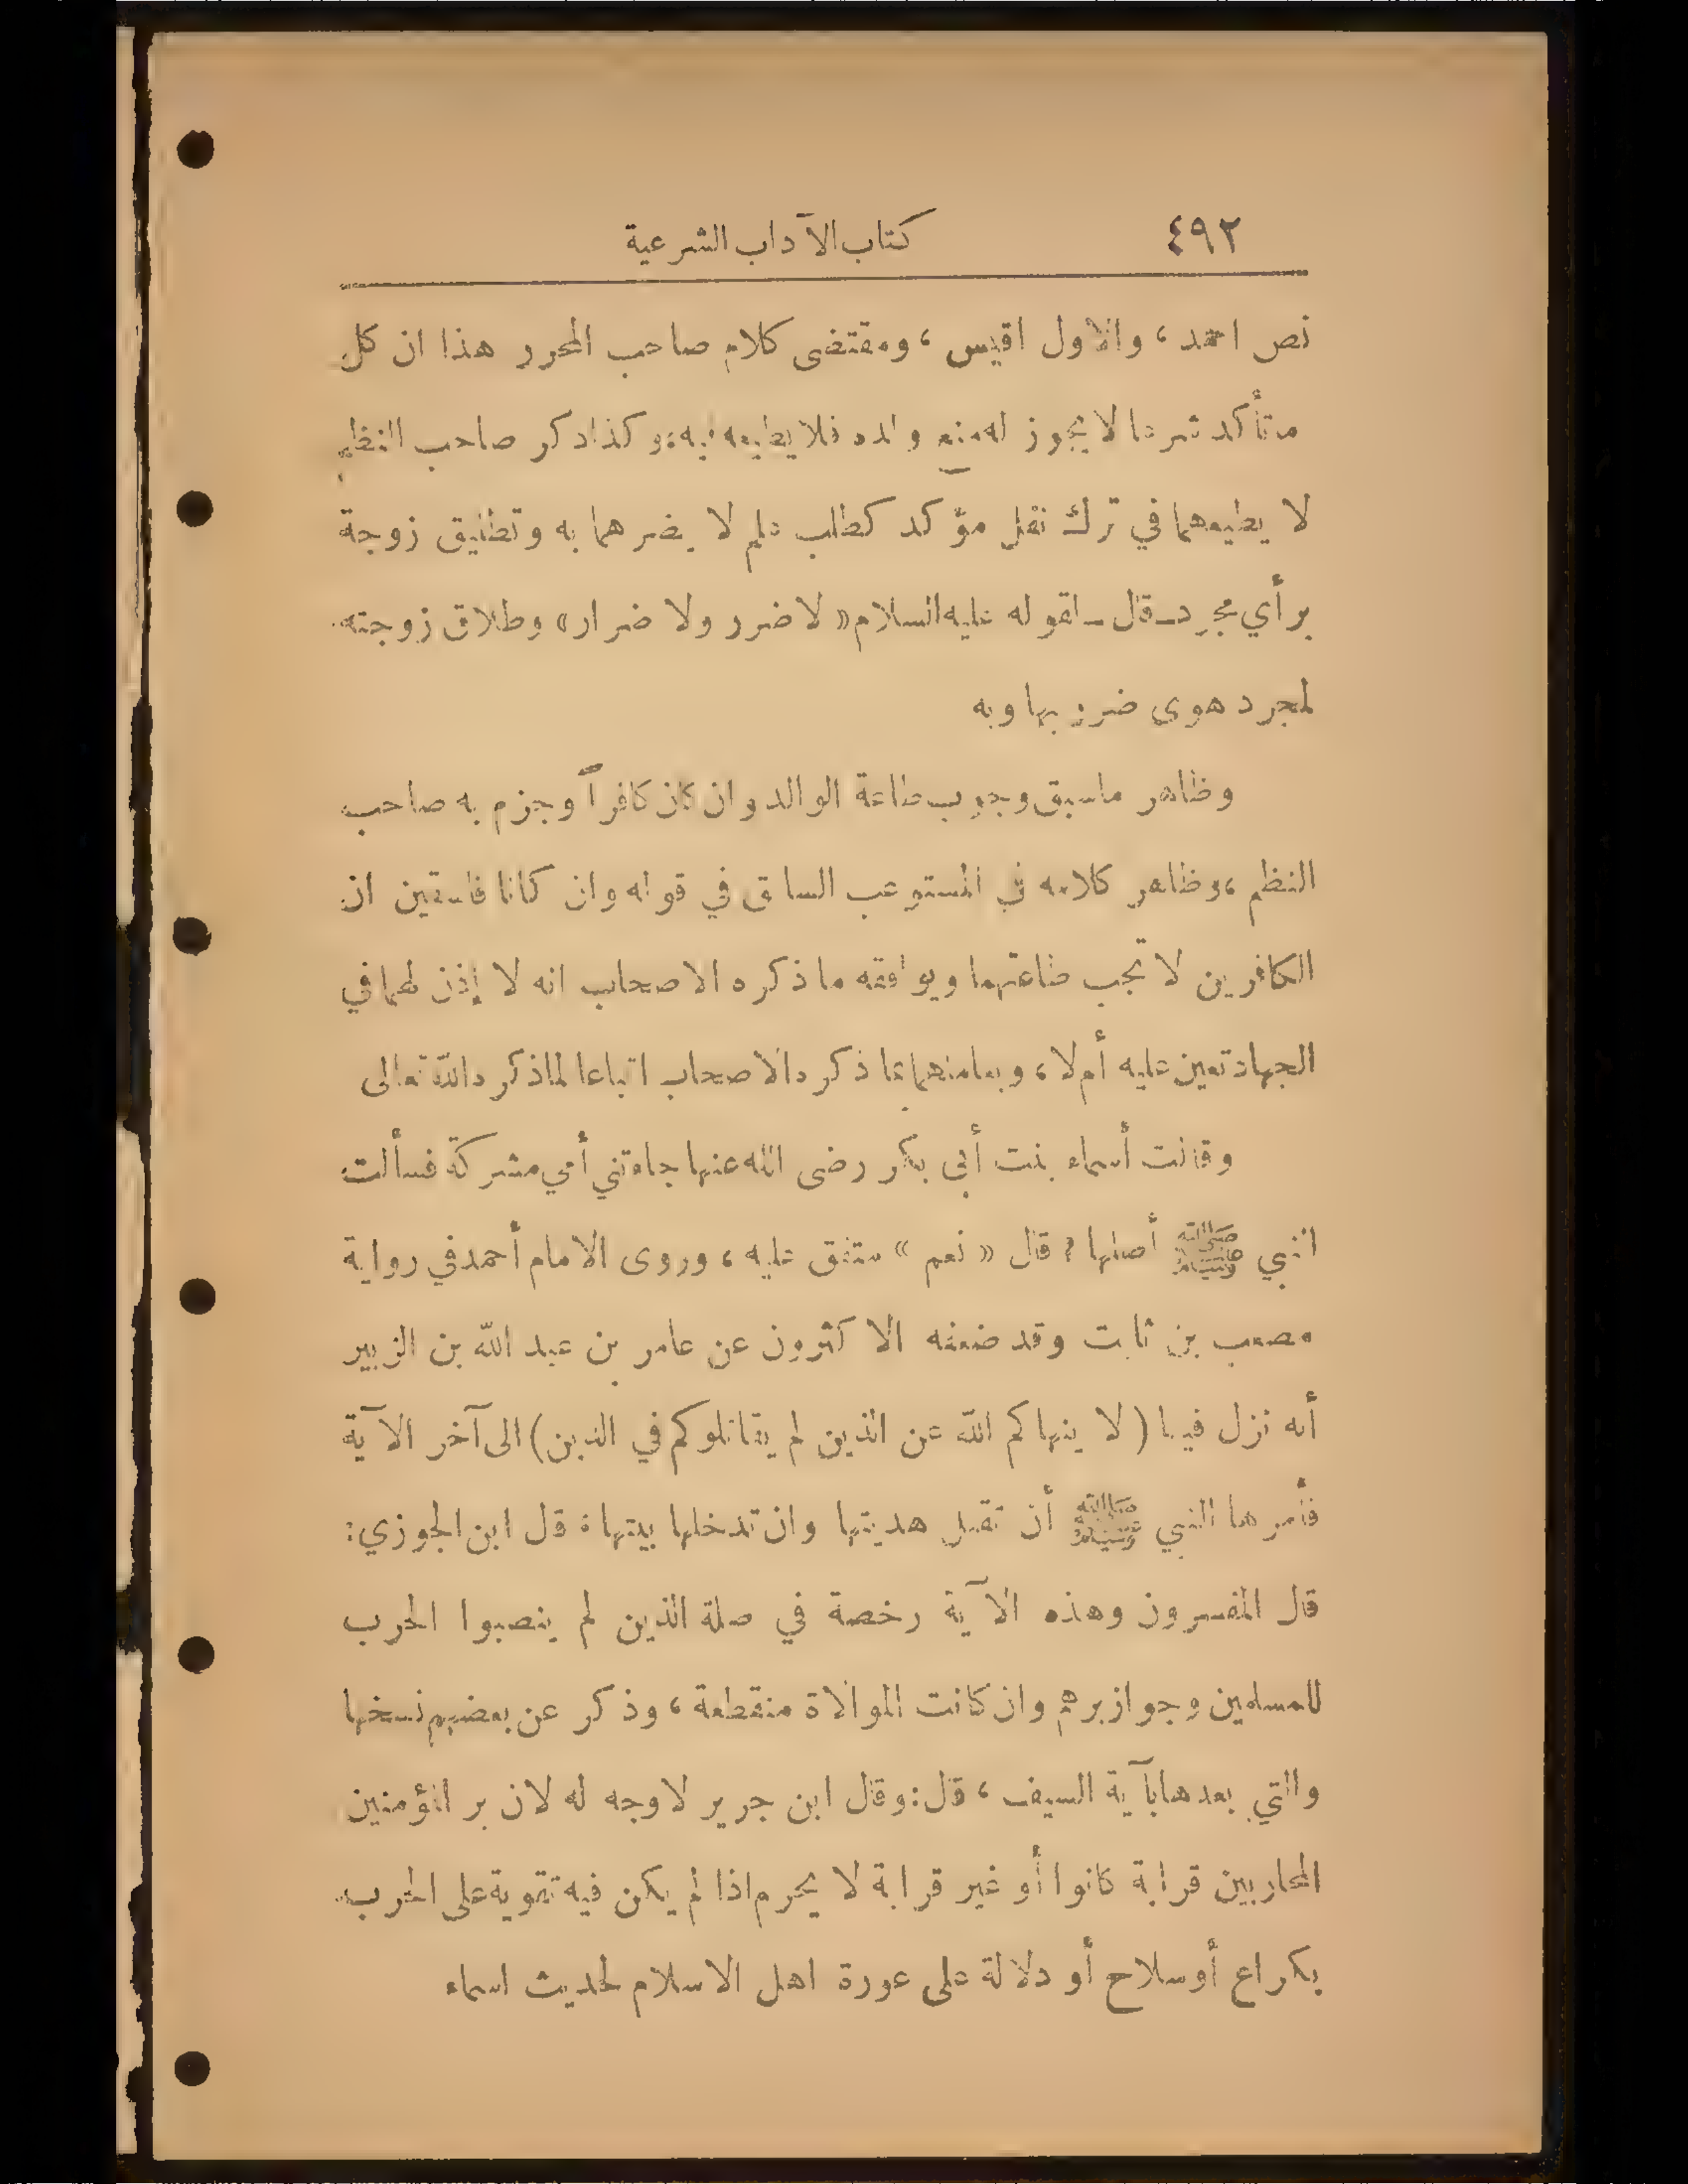 ٤٩٢ كتاب الآداب الشرعية
نص احمد، والاول اقيس، ومقتضى كلام صاحب المحرر هذا ان كل
متأكد شرعا لا يجوز له منع والده فلا يطيعه فيه، وكذا ذكر صاحب النظم
لا يطيعهما في ترك نفل مؤكد كطلب علم لا يضرهما به وتطليق زوجة
برأي مجرد ـ قال ـ لقوله عليه السلام «لا ضرر ولا ضرار» وطلاق زوجته
لمجرد هوى ضرر بها وبه
وظاهر ما سبق وجوب طاعة الوالد وان كان كافراً وجزم به صاحب
النظم، وظاهر كلامه في المستوعب السابق في قوله وان كانا فاسقين ان
الكافرين لا تجب طاعتهما ويوافقه ما ذكره الاصحاب انه لا إذن لهما في
الجهاد تعين عليه أم لا، ويعاملهما بما ذكره الاصحاب اتباعا لما ذكره الله تعالى
وقالت أسماء بنت أبي بكر رضى الله عنها جاءتني أمي مشركة فسألت
النبي ﷺ أصلها؟ قال «نعم» متفق عليه، وروى الامام أحمد في رواية
مصعب بن ثابت وقد ضعفه الاكثرون عن عامر بن عبد الله بن الزبير
أنه نزل فيها (لا ينهاكم الله عن الذين لم يقاتلوكم في الدين) الى آخر الآية
فأمرها النبي ﷺ أن تقبل هديتها وان تدخلها بيتها: قال ابن الجوزي:
قال المفسرون وهذه الآية رخصة في صلة الذين لم ينصبوا الحرب
للمسلمين وجواز برهم وان كانت الموالاة منقطعة، وذكر عن بعضهم نسخها
والتي بعدها بآية السيف، قال: وقال ابن جرير لا وجه له لان بر المؤمنين
المحاربين قرابة كانوا أو غير قرابة لا يحرم اذا لم يكن فيه تقوية على الحرب
بكراع أو سلاح أو دلالة على عورة اهل الاسلام لحديث اسماء